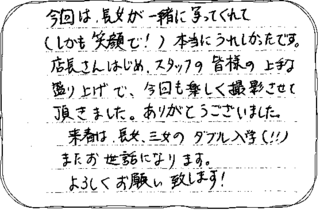 今回は、長女が一緒に写ってくれて
(しかも笑顔で!)本当にうれしかったです。
店長さんはじめ、スタッフの皆様の上手な
盛り上げで、今回も楽しく撮影させて
頂きました。ありがとうございました。
来春は、長女、三女のダブル入学(!!)
またお世話になります。
よろしくお願い致します!